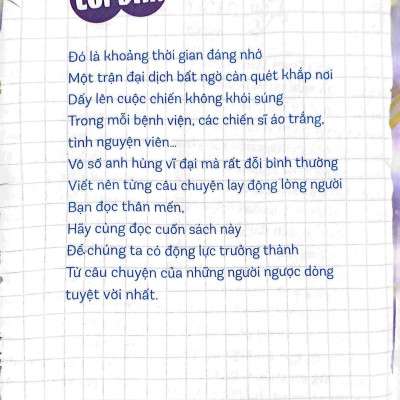 Đó là khoảng thời gian đáng nhớ
Một trận đại dịch bất ngờ càn quét khắp nơi
Dấy lên cuộc chiến không khói súng
Trong mỗi bệnh viện, các chiến sĩ áo trắng,
tình nguyện viên...
Vô số anh hùng vĩ đại mà rất đỗi bình thường
Viết nên từng câu chuyện lay động lòng người
Bạn đọc thân mến,
Hãy cùng đọc cuốn sách này
Để chúng ta có động lực trưởng thành
Từ câu chuyện của những người ngược dòng
tuyệt vời nhất.